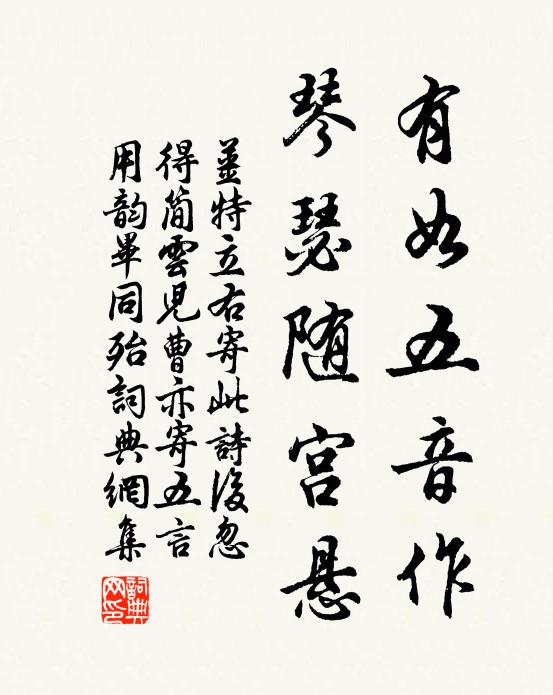 有如五音作
琴瑟随宫悬
姜特立右寄此詩後忽
得简雲児曹亦寄五言
用韵畢同殆詞典網集
詞典網印